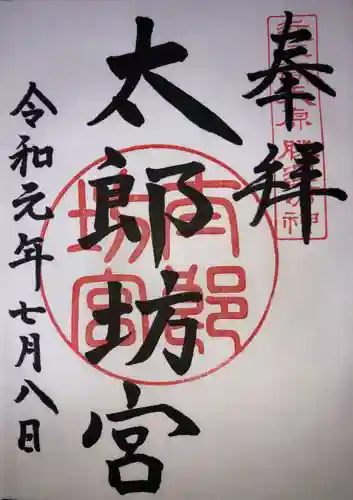 奉拝
太郎坊宮
令和元年七月八日
太郎坊宮